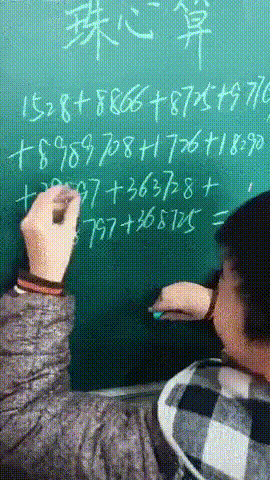 珠心算
1528+8866+8725+9776
+8989708+1726+18290
+363728+
797+368725=